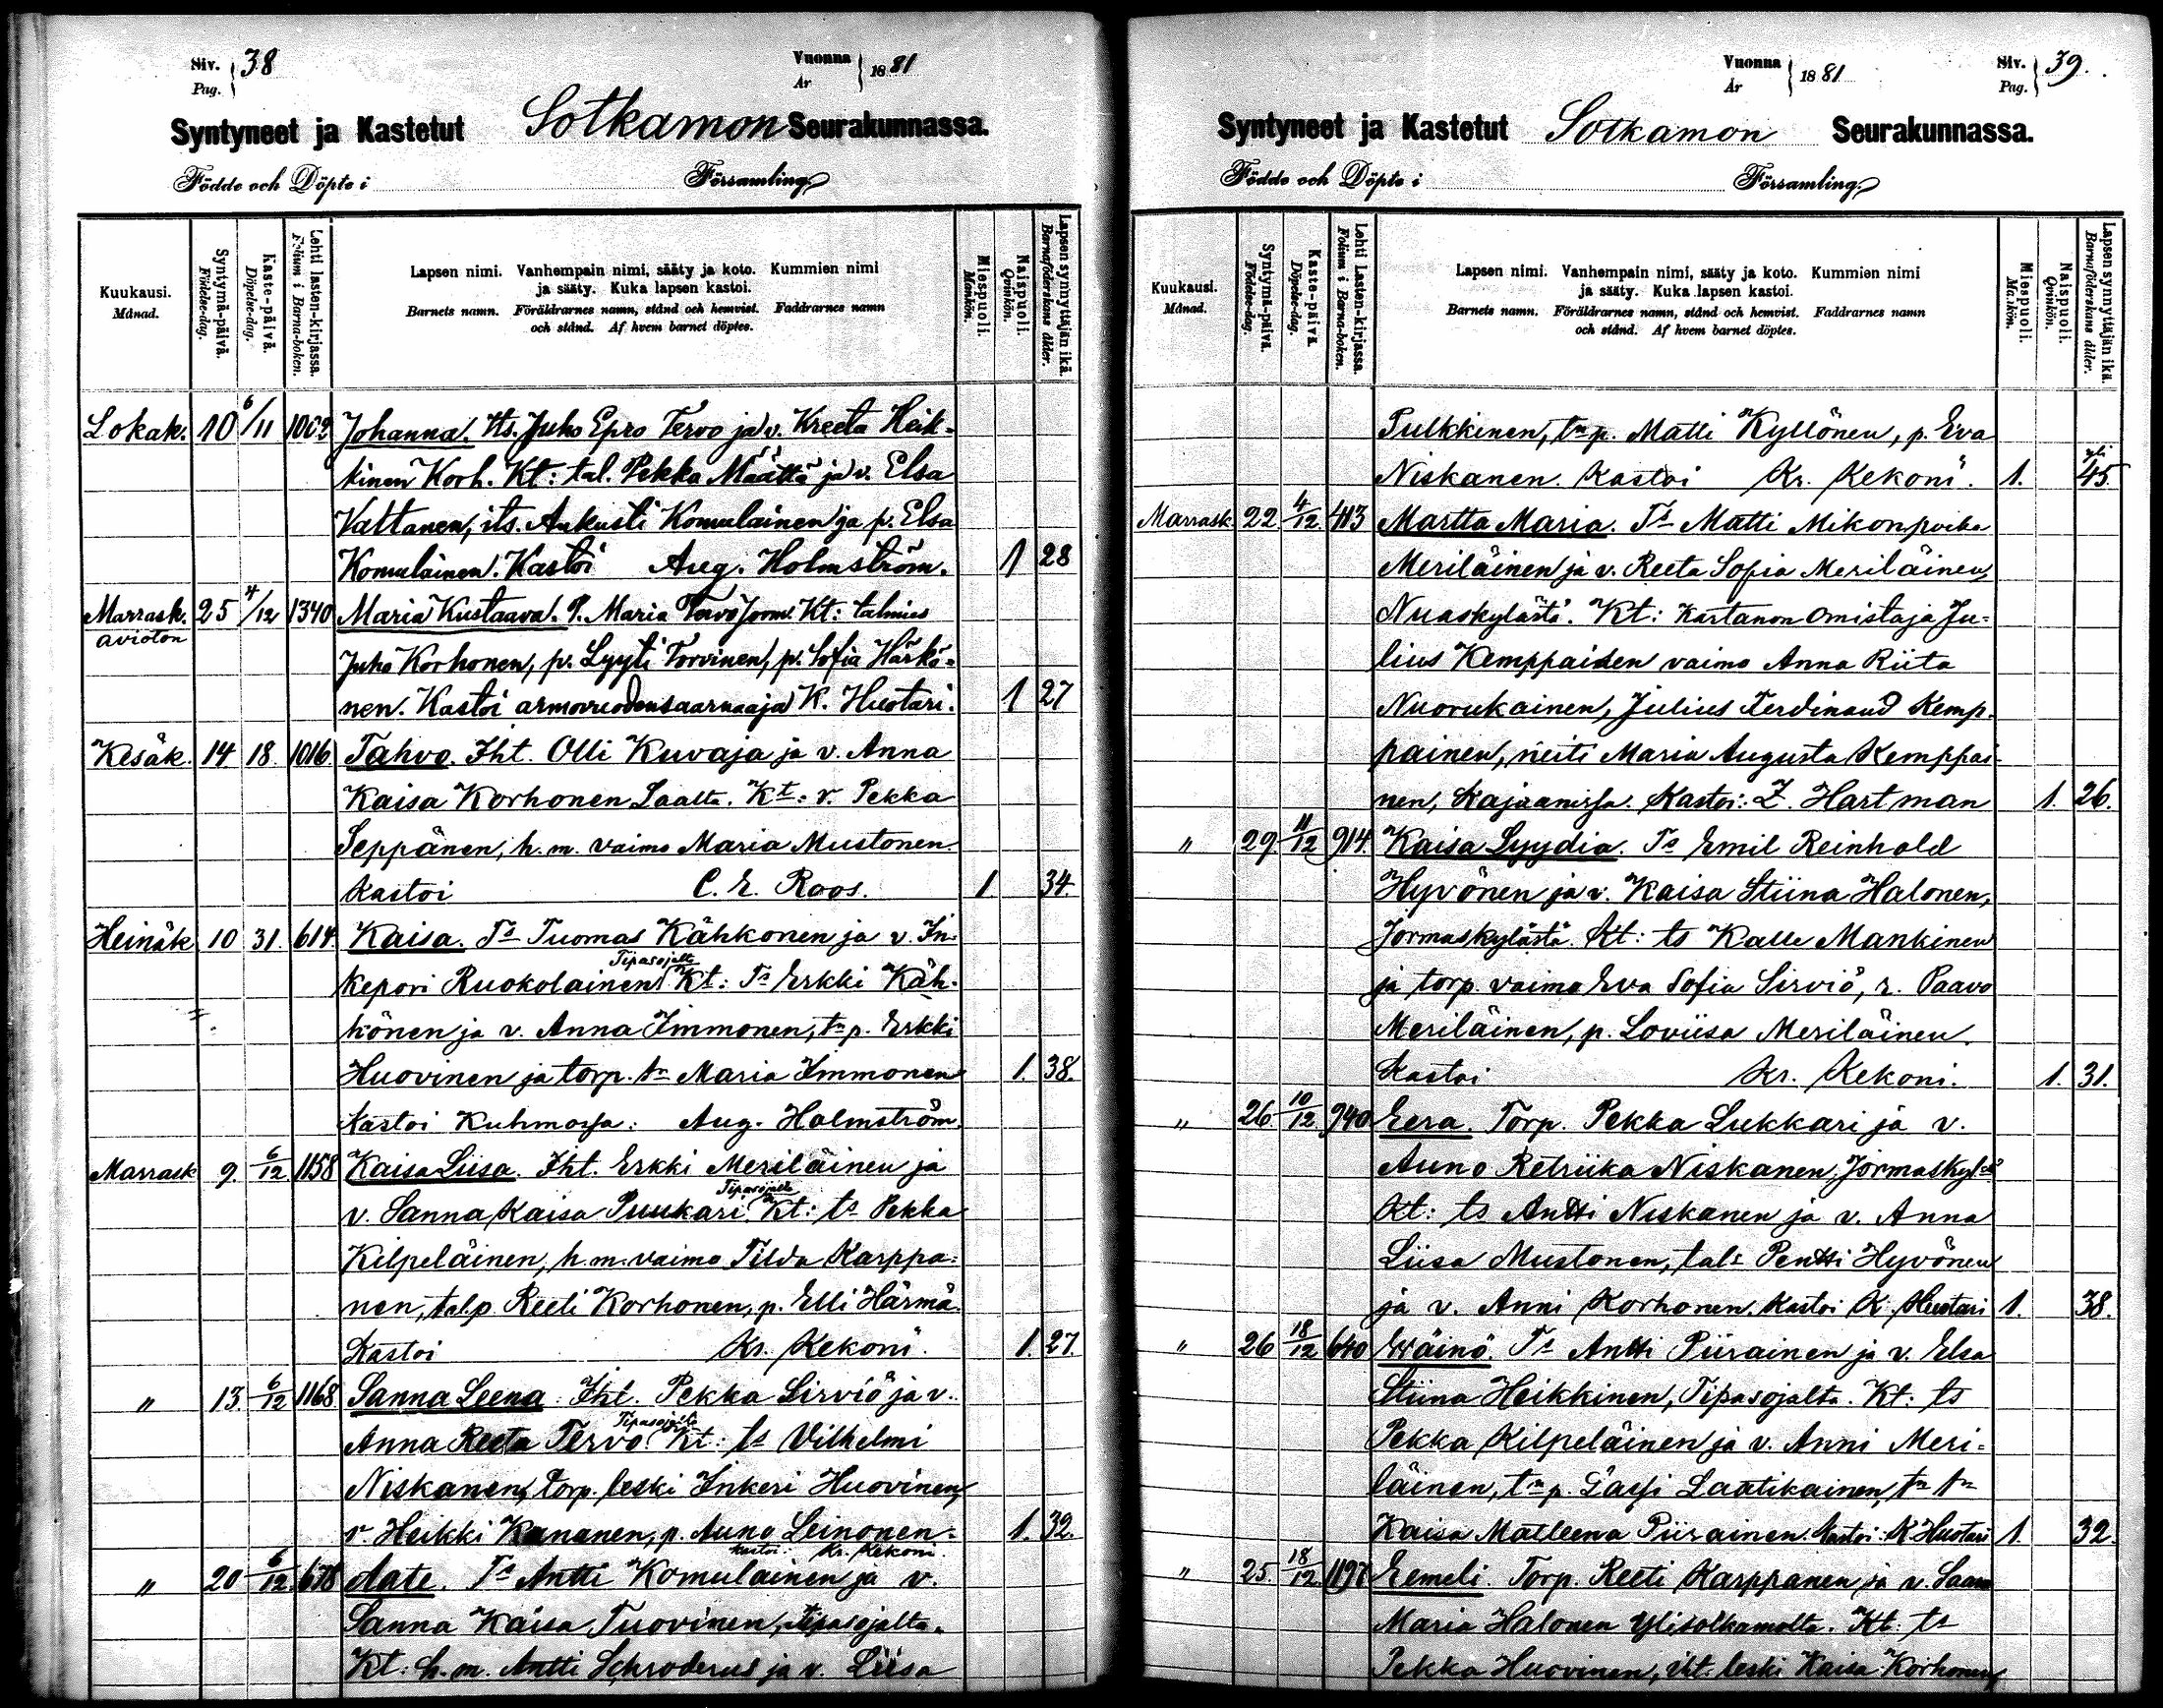 Siv. 38
Pag.
Vuonna 1881
År
Syntyneet ja Kastetut Sotkamon Seurakunnassa.
Födde och Döpte i Församling
Kuukausi.
Månad.
Syntymä-päivä.
Födelse-dag.
Kaste-päivä.
Döpelse-dag.
Lehti lasten-kirjassa.
Folium i Barna-boken.
Lapsen nimi. Vanhempain nimi, sääty ja koto. Kummien nimi
ja sääty. Kuka lapsen kastoi.
Barnets namn. Föräldrarnes namn, stånd och hemvist. Faddrarnes namn
och stånd. Af hvem barnet döptes.
Miespuoli.
Mankön.
Naispuoli.
Qvinkön.
Lapsen synnyttäjän ikä.
Barnaföderskans ålder.
Lokak. 10 6/11 1002 Johanna. Its. Juho Epro Tervo ja v. Kreeta Heik-
kinen Korh. Kt: tal. Pekka Määttä ja v. Elsa
Valtanen, its. Aukusti Komulainen ja p. Elsa
Komulainen. Kastoi Aug. Holmström. 1 28
Marrask. 25 4/12 1340 Maria Kustaava. P. Maria Tervo Kt: talmies
avioton
Juho Korhonen, p. Lyyti Torvinen, p. Sofia Härkö-
nen. Kastoi armovuodensaarnaaja K. Huotari. 1 27
Kesäk. 14 18. 1016. Tahvo. Iht. Olli Kuvaja ja v. Anna
Kaisa Korhonen Laalta. Kt: r. Pekka
Seppänen, h. m. vaimo Maria Mustonen.
Kastoi C. E. Roos. 1. 34.
Heinäk 10 31. 614 Kaisa. Ts Tuomas Kähkonen ja v. In-
Tipasojalta
kepori Ruokolainen Kt: Ts Erkki Käh-
könen ja v. Anna Immonen, tn p. Erkki
Huovinen ja torp. tr Maria Immonen 1. 38.
Kastoi Kuhmossa: Aug. Holmström.
Marrask 9. 6/12 1158 Kaisa Liisa. Iht. Erkki Meriläinen ja
Tipasojalta
v. Sanna Kaisa Puukari. Kt: ts Pekka
Kilpeläinen, h. m. vaimo Tilda Karppa-
nen, tal.p. Reeti Korhonen, p. Elli Härmä.
Kastoi Kr. Kekoni. 1. 27.
" 13. 6/12 1168 Sanna Leena. Iht. Pekka Sirviö ja v.
Tipasojalta
Anna Reeta Tervo. Kt: ts Vilhelmi
Niskanen, torp. leski Inkeri Huovinen,
r. Heikki Kananen, p. Auno Leinonen. 1. 32.
kastoi: Kr. Kekoni.
" 20 6/12 678 Aate. Ts Antti Komulainen ja v.
Sanna Kaisa Tuovinen, Tipasojalta.
Kt: h. m. Antti Schroderus ja v. Liisa
Vuonna 1881
År
Siv. 39.
Pag.
Syntyneet ja Kastetut Sotkamon Seurakunnassa.
Födde och Döpte i Församling
Kuukausi.
Månad.
Syntymä-päivä.
Födelse-dag.
Kaste-päivä.
Döpelse-dag.
Lehti Lasten-kirjassa.
Folium i Barna-boken.
Lapsen nimi. Vanhempain nimi, sääty ja koto. Kummien nimi
ja sääty. Kuka lapsen kastoi.
Barnets namn. Föräldrarnes namn, stånd och hemvist. Faddrarnes namn
och stånd. Af hvem barnet döptes.
Miespuoli.
Mankön.
Naispuoli.
Qvinkön.
Lapsen synnyttäjän ikä.
Barnaföderskans ålder.
Pulkkinen, tn p. Matti Kyllönen, p. Eva
yli
Niskanen. Kastoi Kr. Kekoni. 1. 45.
Marrask. 22 4/12. 413 Martta Maria. Ts Matti Mikonpoika
Meriläinen ja v. Reeta Sofia Meriläinen,
Nuaskylästä. Kt: Kartanon omistaja Ju-
lius Kemppaisen vaimo Anna Riita
Nuorukainen, Julius Ferdinand Kemp-
painen, neiti Maria Augusta Kemppai-
nen, Kajaanissa. Kastoi: Z. Hartman 1. 26.
" 29. 11/12 914. Kaisa Lyydia. Ts Emil Reinhold
Hyvönen ja v. Kaisa Stiina Halonen,
Jormaskylästä. Kt: ts Kalle Mankinen
ja torp. vaimo Eva Sofia Sirviö, r. Paavo
Meriläinen, p. Loviisa Meriläinen.
Kastoi Kr. Kekoni. 1. 31.
" 26. 10/12. 940 Eera. Torp. Pekka Lukkari ja v.
Auno Retriika Niskanen, Jormaskylstä
Kt: ts Antti Niskanen ja v. Anna
Liisa Mustonen, tals Pentti Hyvönen
ja v. Anni Korhonen. Kastoi K. Huotari 1. 38.
" 26 18/12 640 Wäinö. Ts Antti Piirainen ja v. Elsa
Stiina Heikkinen, Tipasojalta. Kt: ts
Pekka Kilpeläinen ja v. Anni Meri-
läinen, tn p. Lassi Laatikainen, tn tr
Kaisa Matleena Piirainen. Kastoi: K. Huotari 1. 32.
" 25. 18/12 1197 Eemeli. Torp. Reeti Karppanen ja v. Saara
Maria Halonen Ylisotkamolta. Kt: ts
Pekka Huovinen, iht. leski Kaisa Korhonen,